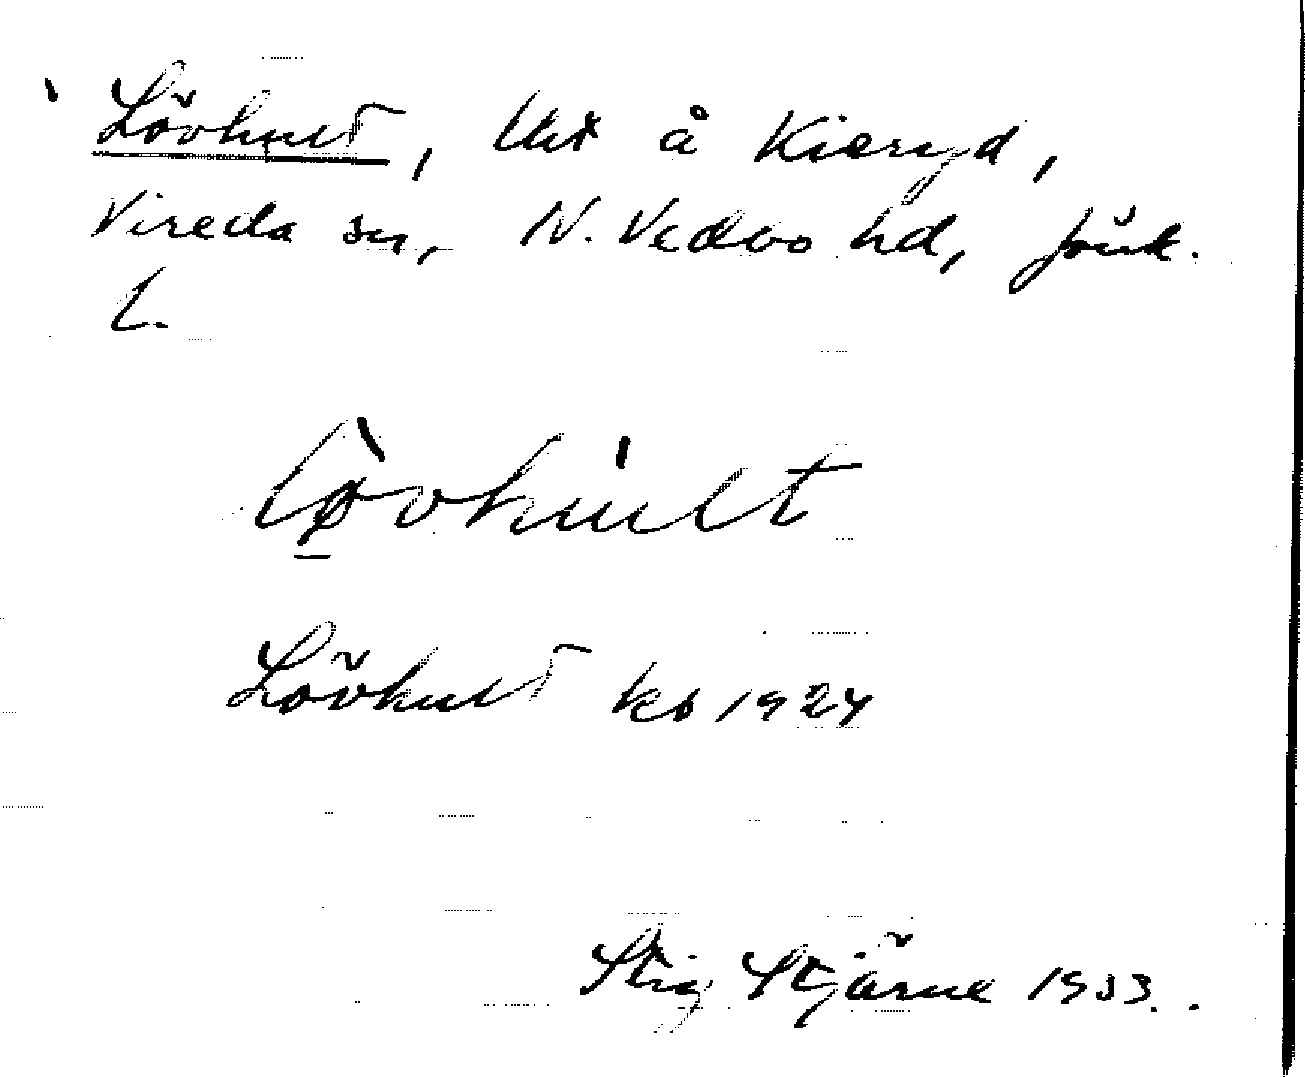 Lövhult, Utx å Kieryd,
Vireda sn, N. Vedbo hd, Jönk.
L.
løvhult
Lövhult kb 1924
Stig Stjärne 1933.